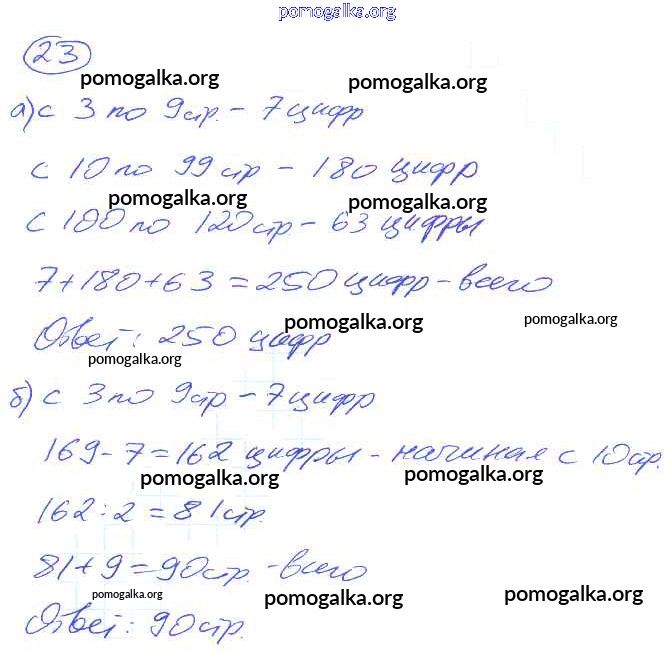 pomogalka.org
23
pomogalka.org
pomogalka.org
а) с 3 по 9 стр. - 7 цифр
с 10 по 99 стр - 180 цифр
pomogalka.org
pomogalka.org
с 100 по 120 стр - 63 цифры
7+180+63=250 цифр - всего
pomogalka.org
pomogalka.org
Ответ: 250 цифр
pomogalka.org
б) с 3 по 9 стр - 7 цифр
169-7=162 цифры - начиная с 10 стр.
pomogalka.org
pomogalka.org
162:2=81 стр.
81+9=90 стр. - всего
pomogalka.org
pomogalka.org
pomogalka.org
Ответ: 90 стр.